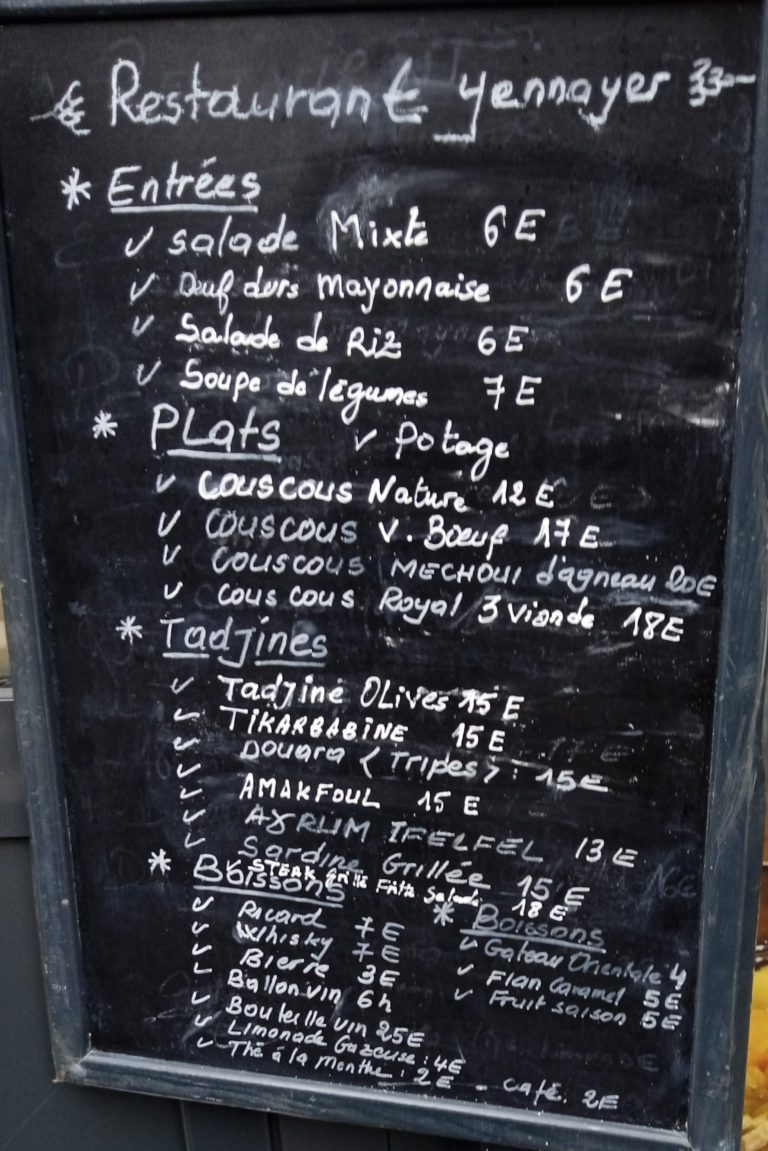 Restaurant yennayer
* Entrées
✓ salade Mixte 6E
✓ Oeuf durs mayonnaise 6E
✓ Salade de Riz 6E
✓ Soupe de légumes 7E
* PLats ✓ Potage
✓ couscous Nature 12E
✓ couscous v. Bœuf 17E
✓ couscous MECHOUI d'agneau 20E
✓ cous cous Royal 3 viande 18E
* Tadjines
✓ Tadjine OLives 15E
✓ TIKARBABINE 15E
✓ Douara (Tripes): 15E
✓ AMAKFOUL 15E
✓ AYRUM IFELFEL 13E
✓ Sardine Grillée 15E
✓ STEAK Grillé Frite Salade 18E
* Boissons
✓ Ricard 7E
✓ Whisky 7E
✓ Bierre 3E
✓ Ballon vin 6h
✓ Bouteille vin 25E
✓ Limonade Gazeuse: 4E
✓ Thé à la menthe: 2E - café. 2E
* Boissons
✓ Gateau Orientale 4
✓ Flan Caramel 5E
✓ Fruit saison 5E